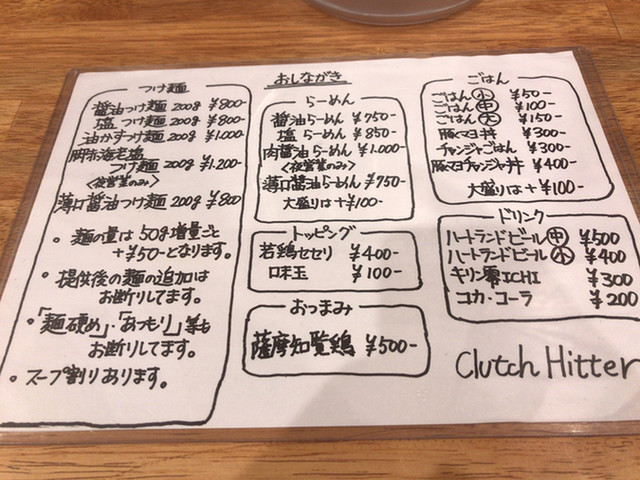 おしながき
つけ麺
醤油つけ麺 200g ¥800-
塩 つけ麺 200g ¥800-
油かすつけ麺 200g ¥1.000-
つけ麺 200g ¥1.200-
〈夜営業のみ〉
薄口醤油つけ麺 ¥800
・麺の量は50g増量ごと
+¥50-となります。
・提供後の麺の追加は
お断りしてます。
・「麺硬め」・「あつもり」等も
お断りしてます。
・スープ割りあります。
らーめん
醤油らーめん ¥750-
塩 らーめん ¥850-
肉醤油らーめん ¥1.000-
〈夜営業のみ〉
薄口醤油らーめん ¥750-
大盛りは+¥100-
トッピング
若鶏セセリ ¥400-
味玉 ¥100-
おつまみ
薩摩知覧鶏 ¥500-
ごはん
ごはん 小 ¥50-
ごはん 中 ¥100-
ごはん 大 ¥150-
豚マヨ丼 ¥300-
チャンジャごはん ¥300-
豚マヨチャンジャ丼 ¥400-
大盛りは+¥100-
ドリンク
ハートランドビール 中 ¥500
ハートランドビール 小 ¥400
キリン零ICHI ¥300
コカ・コーラ ¥200
Clutch Hitter